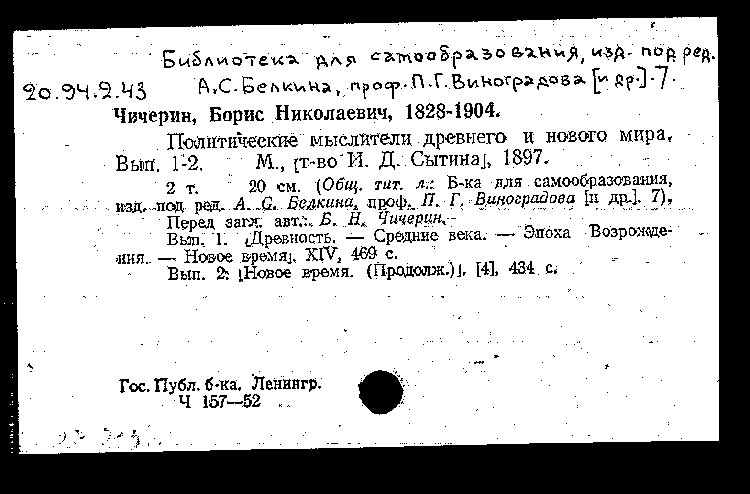 Библиотека для самообразования, изд. под ред.
20.94.2.43 А.С. Белкина, проф. П.Г. Виноградова [и др.]. 7.
Чичерин, Борис Николаевич, 1828-1904.
Политические мыслители древнего и нового мира.
Вып. 1-2. М., [т-во И. Д. Сытина], 1897.
2 т. 20 см. (Общ. тит. л.: Б-ка для самообразования,
изд. под ред. А. С. Белкина, проф. П. Г. Виноградова [и др.]. 7).
Перед загл. авт.: Б. Н. Чичерин.
Вып. 1. [Древность. — Средние века. — Эпоха Возрожде-
ния. — Новое время]. XIV, 469 с.
Вып. 2: [Новое время. (Продолж.)]. [4], 434 с.
Гос. Публ. б-ка. Ленингр.
Ч 157—52